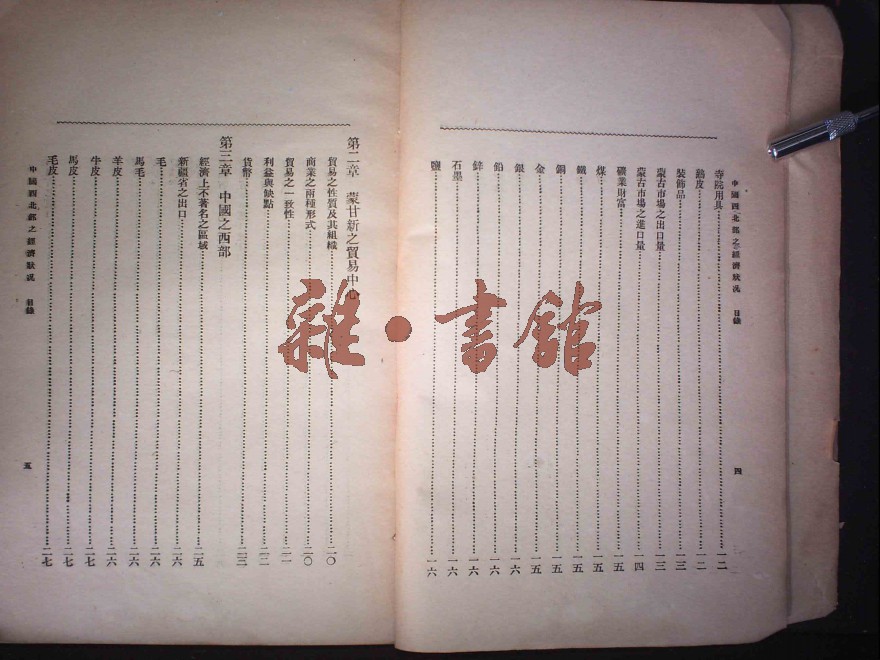 中國西北部之經濟狀況 目錄 四
寺院用具 一二
鷄皮 一二
裝飾品 一三
蒙古市場之出口量 一三
蒙古市場之進口量 一四
礦業財富 一五
煤 一五
鐵 一五
銅 一五
金 一五
銀 一六
鉛 一六
鋅 一六
石墨 一六
鹽 一六
第二章 蒙甘新之貿易中心
貿易之性質及其組織 二〇
商業之兩種形式 二〇
貿易之一致性 二一
利益與缺點 二二
貨幣 二三
第三章 中國之西部
經濟上不著名之區域 二五
新疆省之出口 二六
毛 二六
馬毛 二六
羊皮 二六
牛皮 二七
馬皮 二七
毛皮 二七
中國西北部之經濟狀況 目錄 五
雜·書館